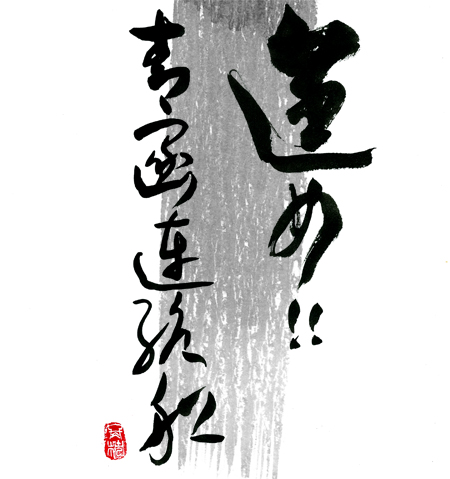 進め!!
青函連絡船